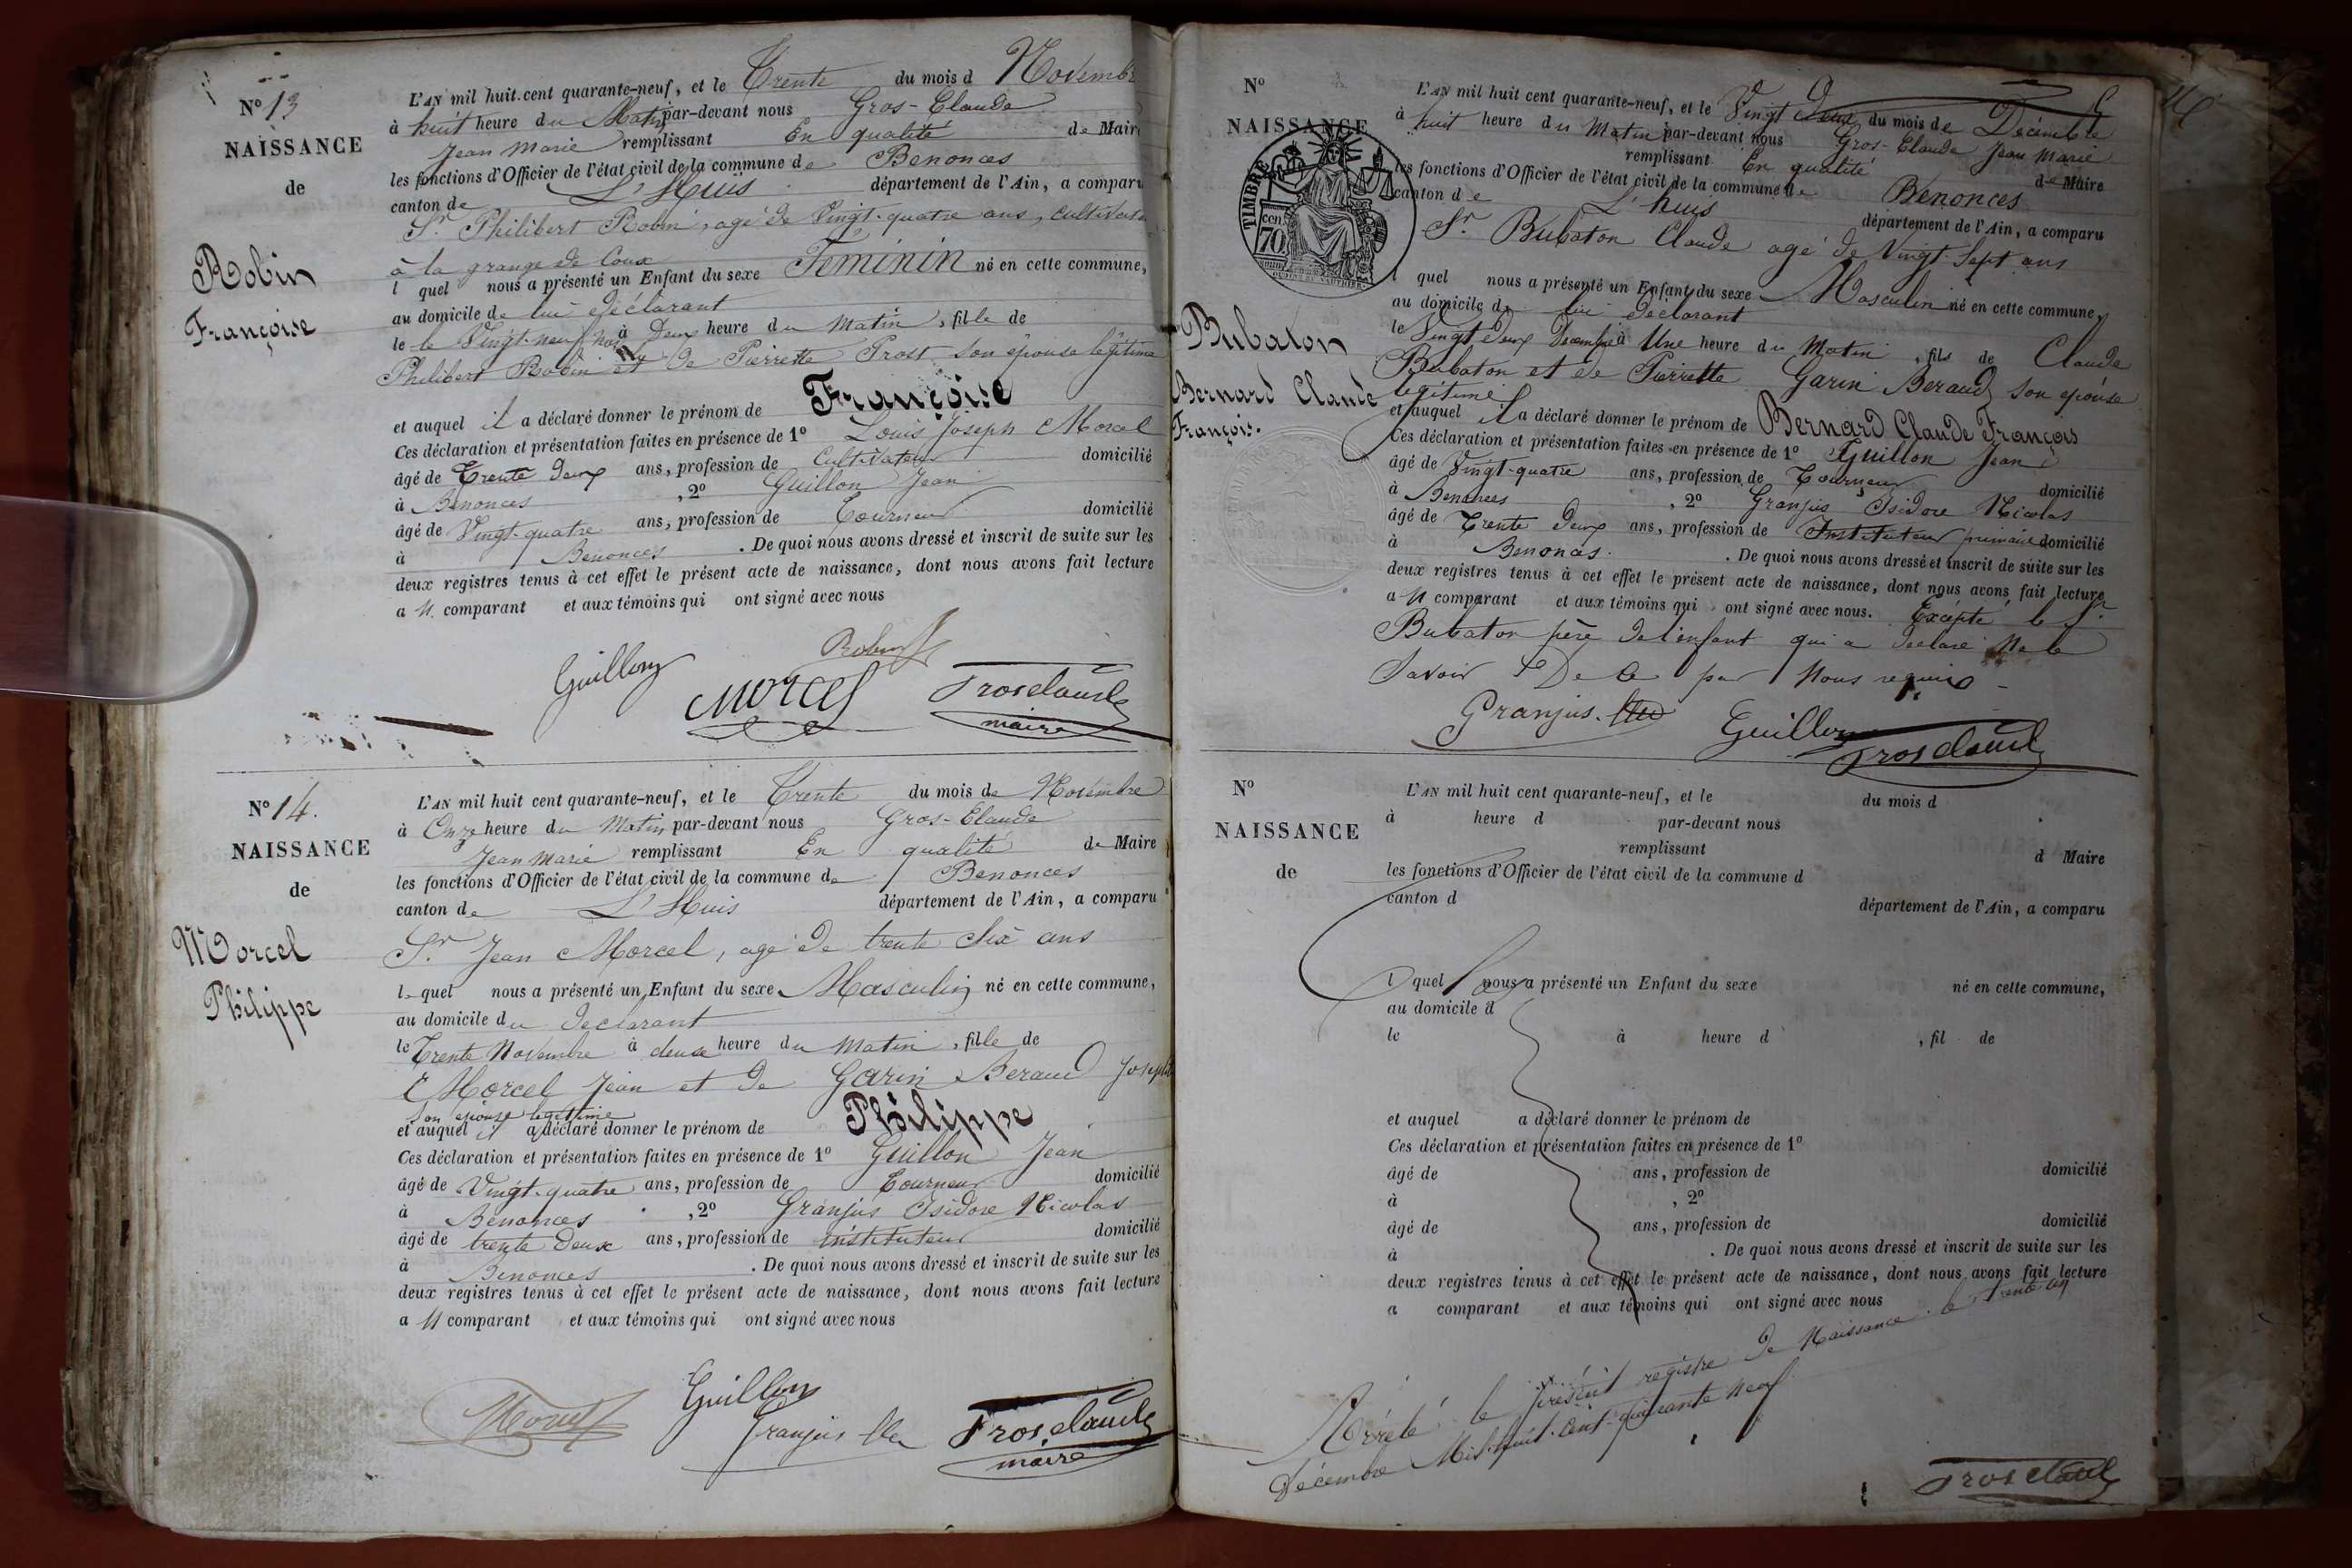 N° 13
NAISSANCE
de
Robin
Françoise
L'AN mil huit cent quarante-neuf, et le Trente du mois d Novembre
à huit heure du Matin par-devant nous Gros-Claude
Jean Marie remplissant En qualité de Maire
les fonctions d'Officier de l'état civil de la commune de Benonces
canton de L'Huis département de l'Ain, a comparu
Sr. Philibert Robin, agé de Vingt-quatre ans, cultivateur
à la grange de
l quel nous a présenté un Enfant du sexe Feminin né en cette commune,
au domicile de lui déclarant
le le Vingt-neuf à Deux heure du matin, fille de
Philibert Robin et de Pierrette Prost son épouse légitime
et auquel il a déclaré donner le prénom de Françoise
Ces déclaration et présentation faites en présence de 1° Louis Joseph Morcel
âgé de Trente Deux ans, profession de Cultivateur domicilié
à Benonces , 2° Guillon Jean
âgé de Vingt-quatre ans, profession de Tourneur domicilié
à Benonces . De quoi nous avons dressé et inscrit de suite sur les
deux registres tenus à cet effet le présent acte de naissance, dont nous avons fait lecture
a u comparant et aux témoins qui ont signé avec nous
Robin
Guillon Morcel Grosclaude
maire
N° 14.
NAISSANCE
de
Morcel
Philippe
L'AN mil huit cent quarante-neuf, et le Trente du mois de Novembre
à Onze heure du Matin par-devant nous Gros-Claude
Jean Marie remplissant En qualité de Maire
les fonctions d'Officier de l'état civil de la commune de Benonces
canton de L'Huis département de l'Ain, a comparu
Sr. Jean Morcel, agé de trente Six ans
le quel nous a présenté un Enfant du sexe Masculin né en cette commune,
au domicile du declarant
le Trente Novembre à deux heure du matin, fille de
Morcel Jean et de Garin Beraud Josephte
son epouse legitime
et auquel il a déclaré donner le prénom de Philippe
Ces déclaration et présentation faites en présence de 1° Guillon Jean
âgé de Vingt-quatre ans, profession de Tourneur domicilié
à Benonces , 2° Granjus Isidore Nicolas
âgé de trente Deux ans, profession de instituteur domicilié
à Benonces . De quoi nous avons dressé et inscrit de suite sur les
deux registres tenus à cet effet le présent acte de naissance, dont nous avons fait lecture
a u comparant et aux témoins qui ont signé avec nous
Morcel Guillon
Granjus Grosclaude
maire
N°
NAISSANCE
TIMBRE
cen.
70
Bubaton
Bernard Claude
François.
L'AN mil huit cent quarante-neuf, et le Vingt Deux du mois de Decembre
à huit heure du Matin par-devant nous Gros-Claude Jean Marie
remplissant En qualité de Maire
les fonctions d'Officier de l'état civil de la commune de Benonces
canton de L'huis département de l'Ain, a comparu
Sr. Bubaton Claude agé de Vingt-Sept ans
l quel nous a présenté un Enfant du sexe Masculin né en cette commune,
au domicile de lui declarant
le Vingt Deux Decembre à Une heure du Matin, fils de Claude
Bubaton et de Pierrette Garin Beraud son epouse
legitime
et auquel il a déclaré donner le prénom de Bernard Claude François
Ces déclaration et présentation faites en présence de 1° Guillon Jean
âgé de Vingt-quatre ans, profession de Tourneur domicilié
à Benonces , 2° Granjus Isidore Nicolas
âgé de Trente Deux ans, profession de Instituteur primaire domicilié
à Benonces. . De quoi nous avons dressé et inscrit de suite sur les
deux registres tenus à cet effet le présent acte de naissance, dont nous avons fait lecture
a u comparant et aux témoins qui ont signé avec nous. Excepté le Sr.
Bubaton père de l'enfant qui a declaré ne le
Savoir De ce par Nous requis
Granjus Guillon
Grosclaude
N°
NAISSANCE
de
L'AN mil huit cent quarante-neuf, et le du mois d
à heure d par-devant nous
remplissant d Maire
les fonctions d'Officier de l'état civil de la commune d
canton d département de l'Ain, a comparu
l quel nous a présenté un Enfant du sexe né en cette commune,
au domicile d
le à heure d , fil de
et auquel a déclaré donner le prénom de
Ces déclaration et présentation faites en présence de 1°
âgé de ans, profession de domicilié
à , 2°
âgé de ans, profession de domicilié
à . De quoi nous avons dressé et inscrit de suite sur les
deux registres tenus à cet effet le présent acte de naissance, dont nous avons fait lecture
a comparant et aux témoins qui ont signé avec nous
Arrêté le présent registre de Naissance le trente un
Décembre Mil-huit-cent-quarante neuf
Grosclaude